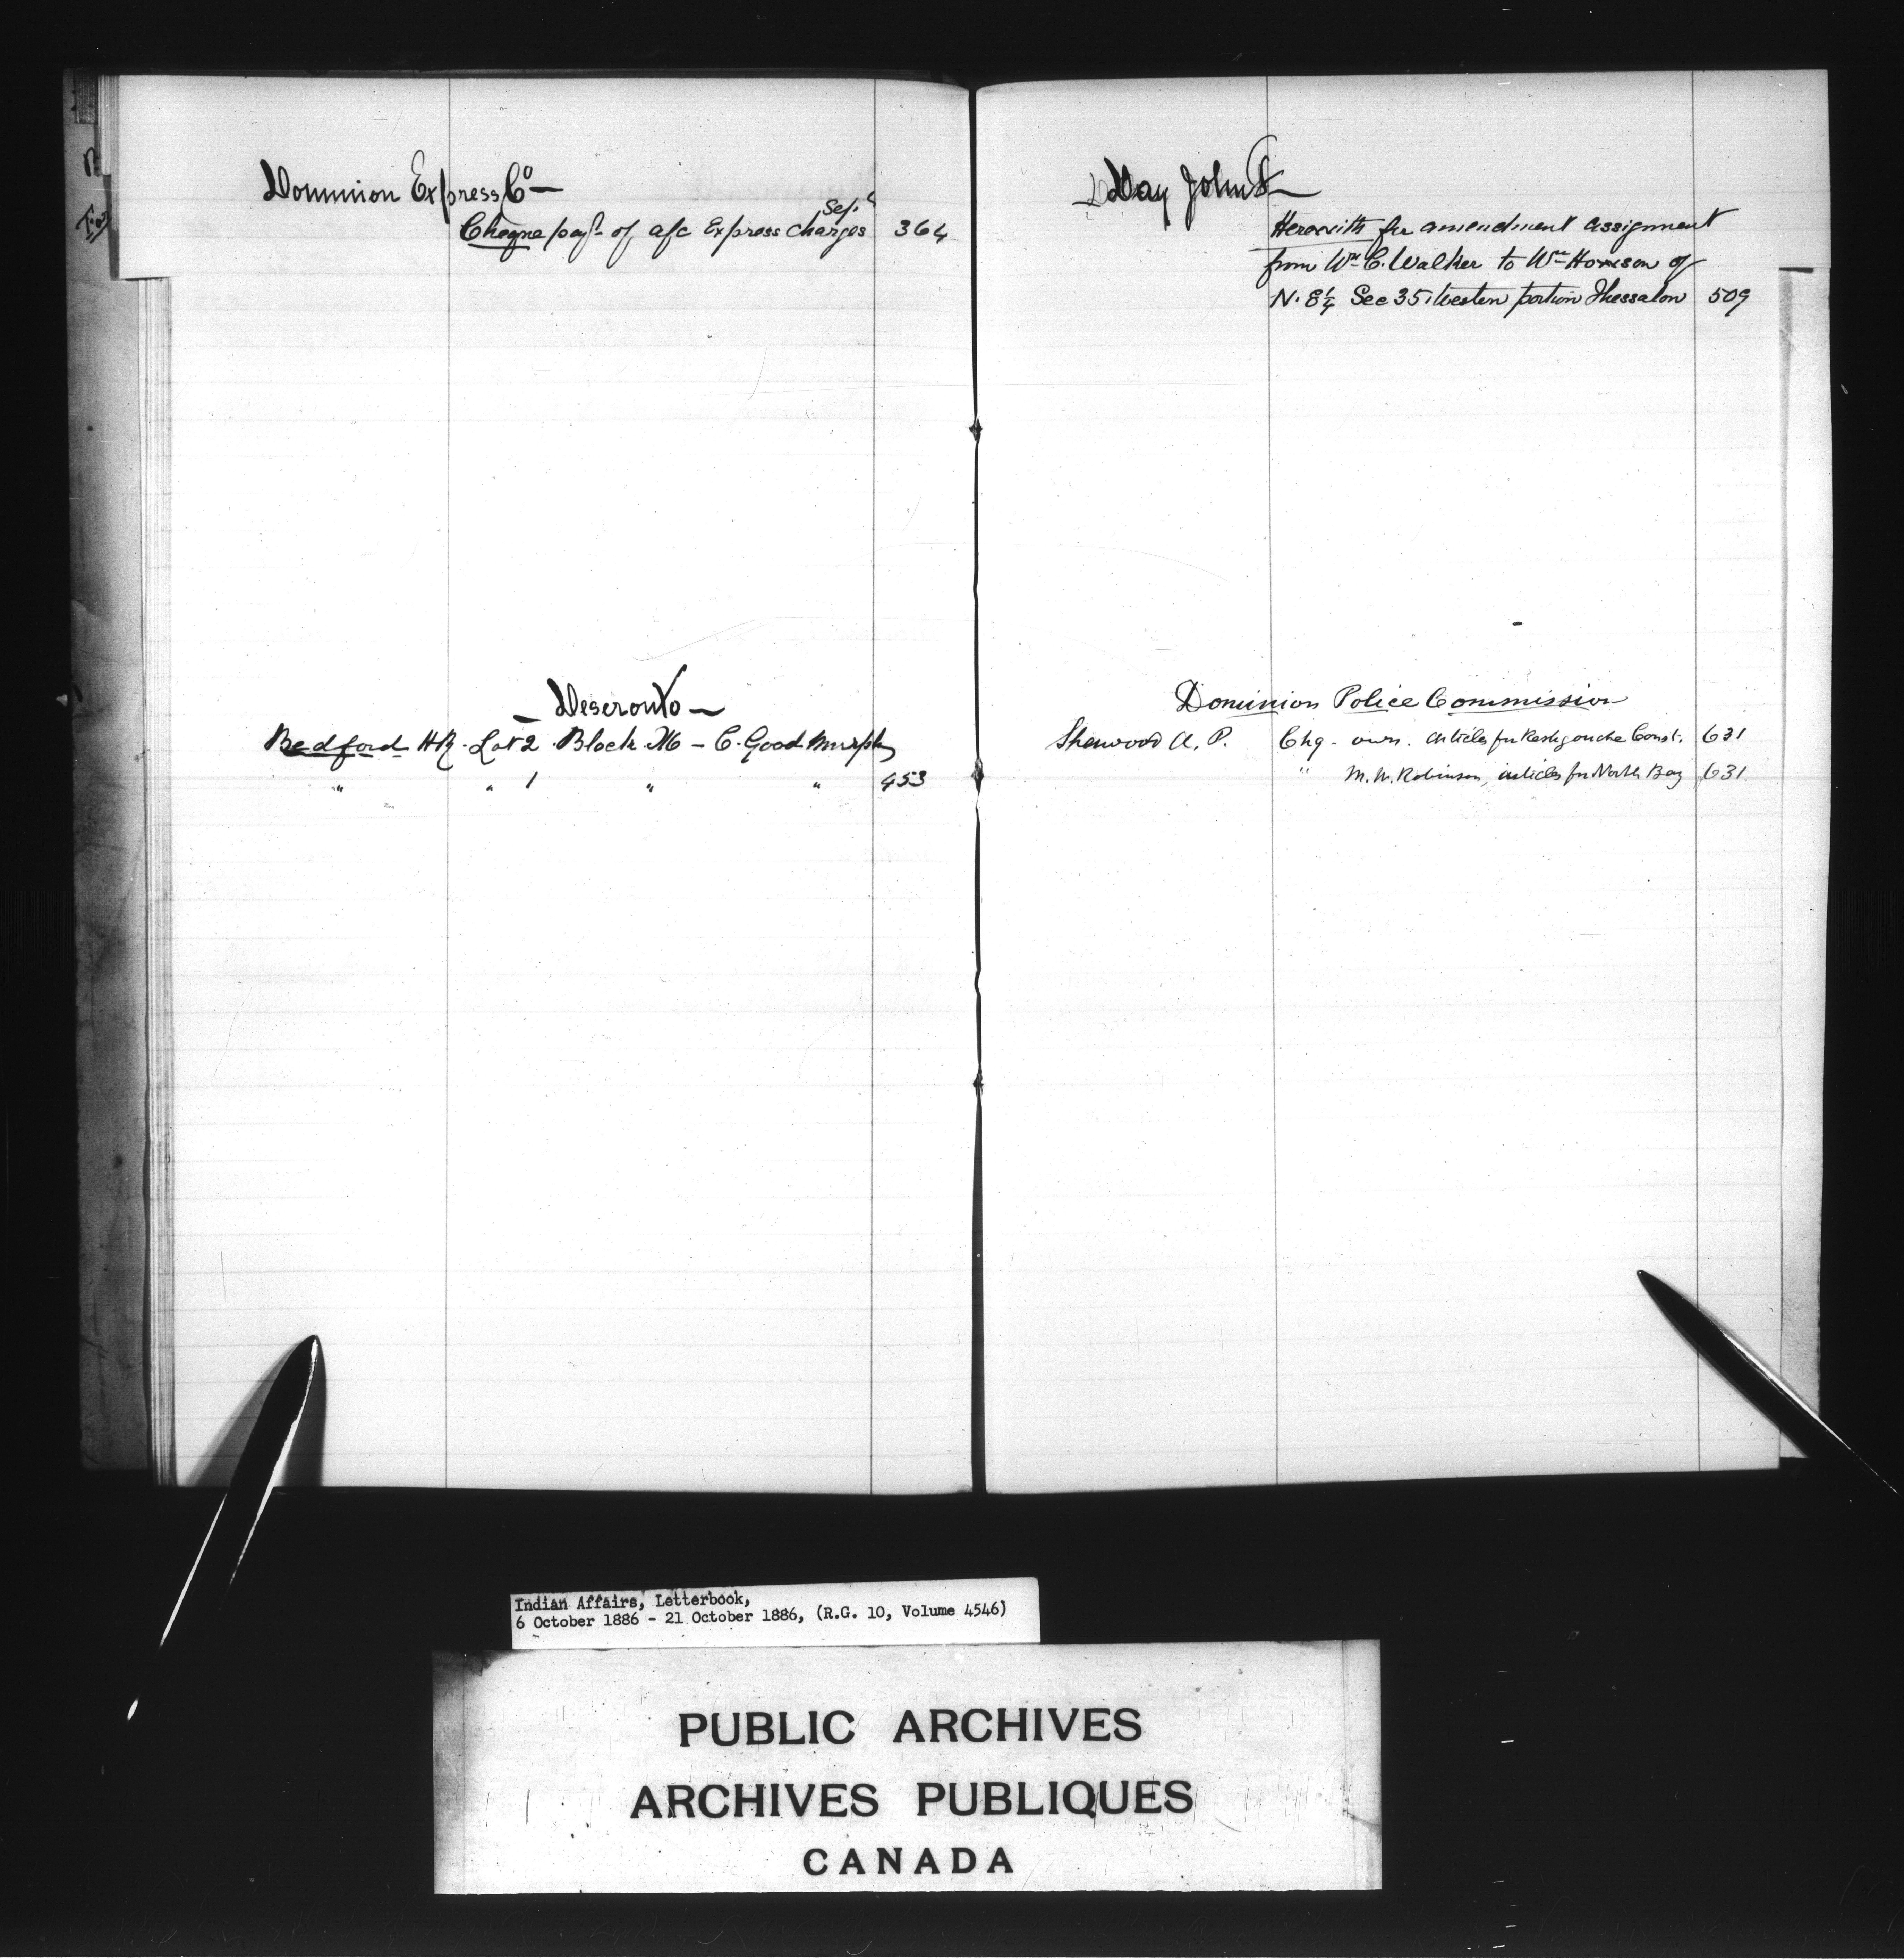 Dominion Express Co —
Sept
Cheque payt of a/c Express charges 364
— Deseronto —
Bedford HR. Lot 2 Block M — C. Good Murphy
" " 1 " " 453
Day John
Herewith for amendment assignment
from Wm C. Walker to Wm Harrison of
N. E ¼ Sec 35 Western portion Thessalon 509
Dominion Police Commission
Sherwood A. P. Chq. own. articles for Restigouche Const. 631
" M. W. Robinson, articles for North Bay 631
Indian Affairs, Letterbook,
6 October 1886 - 21 October 1886, (R.G. 10, Volume 4546)
PUBLIC ARCHIVES
ARCHIVES PUBLIQUES
CANADA